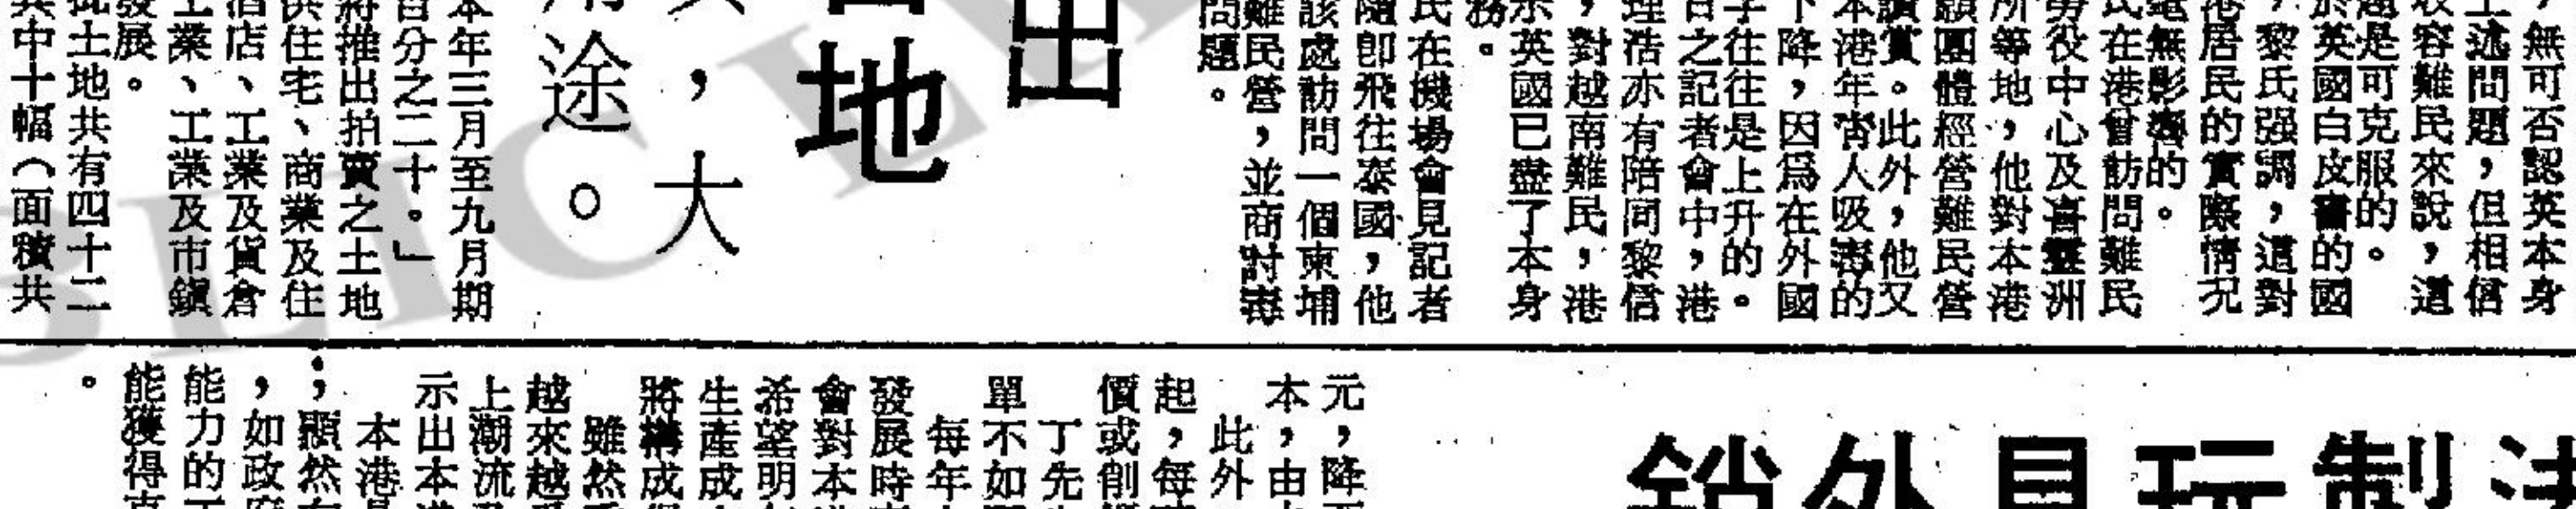 ，無可否認英本身
上述問題，但相信
收容難民來說，這
題是可克服的。
於英國白皮書的國
，黎氏强調，這對
港居民的實際情况
毫無影響的。
民在港曾訪問難民
勞役中心及喜靈洲
所等地，他對本港
願團體經營難民營
讚賞。此外，他又
本港年靑人吸毒的
下降，因爲在外國
字往往是上升的。
日之記者會中，港
理浩亦有陪同黎信
，對越南難民，港
示英國已盡了本身
務。
民在機場會見記者
隨卽飛往泰國，他
該處訪問一個柬埔
難民營，並商討毒
問題。
出
地
，大
用途。
本年三月至九月期
百分之二十。」
將推出拍賣之土地
供住宅、商業及住
酒店、工業及貨倉
工業、工業及市鎭
發展。
批土地共有四十二
其中十幅（面積共
法制玩具外銷
元，降
本，由
此外
起，每
價或削
丁先
單不如
每年
發展時
會對本
希望明
生產成
將構成
雖然
越來越
上潮流
示出本
本港
；顯然
，如政
能力的
能獲得
。